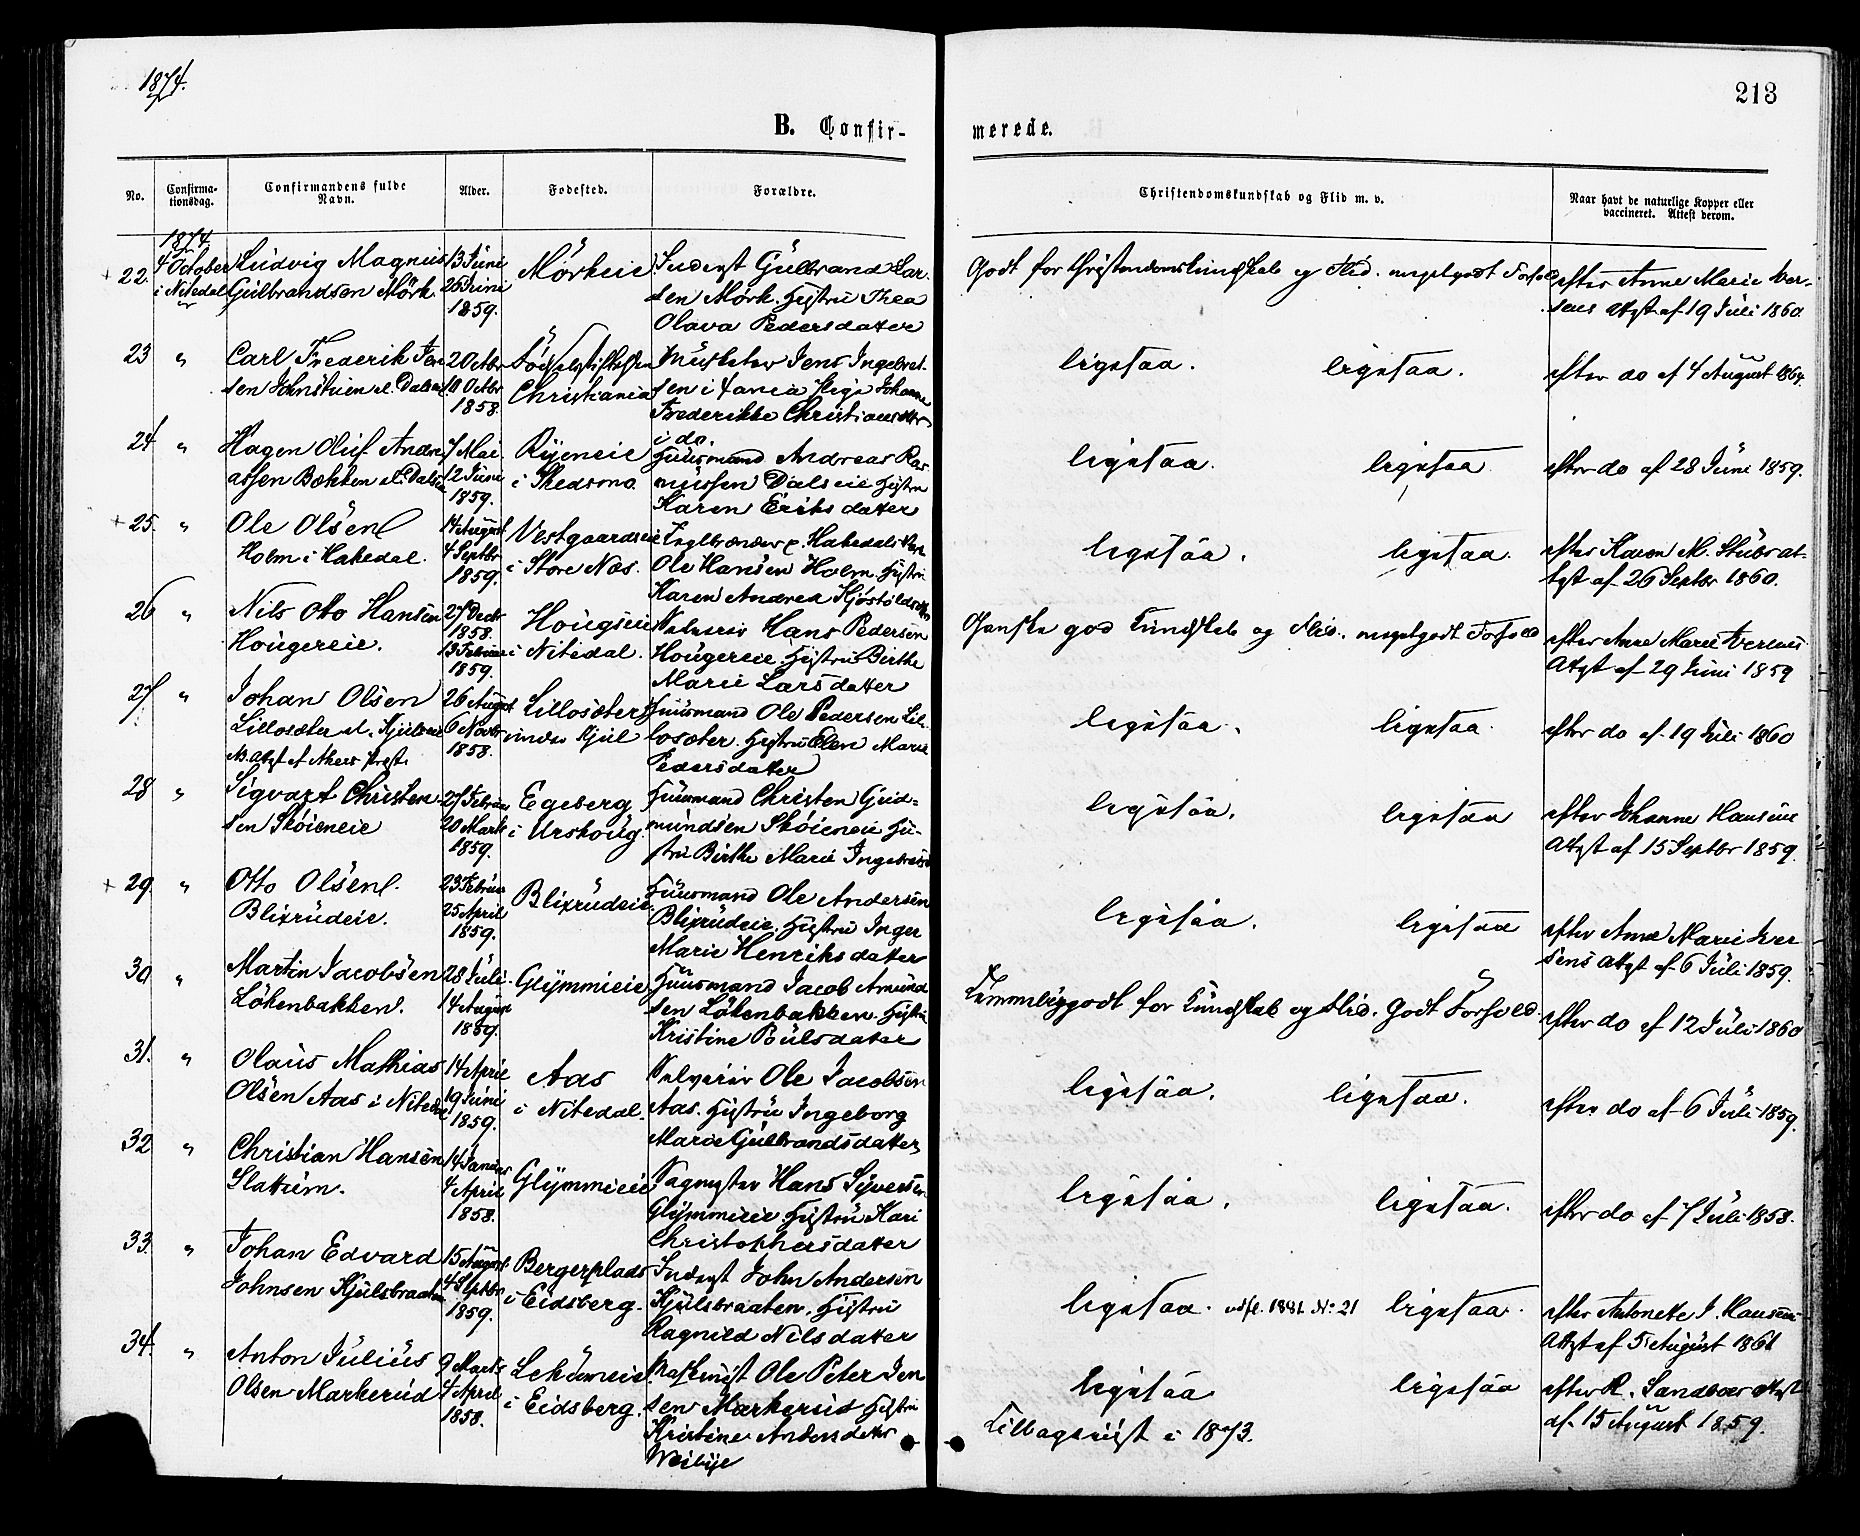 1874.
213
B. Confir-
merede.
No.
Confirma-
tionsdag.
Confirmandens fulde
Navn.
Alder.
Fødested.
Forældre.
Christendomskundskab og Flid m. v.
Naar havt de naturlige Kopper eller
vaccineret. Attest derom.
1874.
+ 22.
4 October
i Nitedal
Ludvig Magnus
Gulbrandsen Mörk.
13 Juni
26 Juni
1859.
Mörkeie
Inderst Gulbrand Lar-
sen Mörk. Hustru Thea
Olava Pedersdatter
Godt for Christendomskundskab og Flid. meget godt Forhold
efter Anne Marie Iver-
sens Attest af 19 Juli 1860.
23
"
Carl Frederik Jen
sen
2 Octbr
10 Octbr
1858.
Födselsstiftelsen
Christiania
Jens Ingebret-
sen
Pige Johanne
Frederikke Christiansdtr
i do.
ligesaa.
ligesaa.
efter do af 4 August 1864.
24
"
Hagen Oluf Andre
assen Bækken
7 Mai
12 Juni
1859.
Ryeneie
i Skedsmo.
Huusmand Andreas Ras-
mussen Dalseie Hustru
Karen Eriksdatter
ligesaa.
ligesaa.
efter do af 28 Juni 1859.
+ 25.
"
Ole Olsen
Holm i Hakedal.
14 August
4 Septbr
1859.
Vestgaardseie
i Store Næs.
Hakedals Værk
Ole Hansen Holm. Hustru
Karen Andrea
ligesaa.
ligesaa.
efter Karen M. Stubs at-
test af 26 Septbr 1860.
26
"
Nils Otto Hansen
Hougereie.
27 Decbr
1858.
13 Februar
1859.
Hougseie
i Nitedal.
Selveier Hans Pedersen
Hougereie. Hustru Birthe
Marie Larsdatter
Ganske god Kundskab og Flid. meget godt Forhold
efter Anne Marie Iversens
Attest af 29 Juni 1859
27
"
Johan Olsen
Lillosæter
26 August
6 Novbr
1858.
Lillosæter
under Kjul
Huusmand Ole Pedersen Lil-
losæter. Hustru Elen Marie
Pedersdatter
ligesaa.
ligesaa.
efter do af 19 Juli 1860
28
"
Sigvart Christen-
sen Sköieneie
27 Februar
20 Marts
1859.
Egeberg
i Urskoug.
Huusmand Christen Gud-
mundsen Sköieneie Hu-
stru Birthe Marie
ligesaa.
ligesaa
efter Johanne Hansens
Attest af 15 Septbr 1859.
+ 29.
"
Otto Olsen
Blixrudeie.
23 Februar
25 April
1859.
Blixrudeie.
Huusmand Ole Andersen
Blixrudeie. Hustru Inger
Marie Henriksdatter
ligesaa.
ligesaa
efter Anne Marie Iver
sens attest af 6 Juli 1859.
30
"
Martin Jacobsen
Lökenbakken.
28 Juli
14 August
1859.
Glymmieie
Huusmand Jacob Amund
sen Lökenbakken. Hustru
Kristine Pouls datter
Temmelig godt for Kundskab og Flid. Godt Forhold.
efter do af 12 Juli 1860
31.
"
Olaus Mathias
Olsen Aas i Nitedal
14 April
19 Juni
1859.
Aas
i Nitedal.
Selveier Ole Jacobsen
Aas. Hustru Ingeborg
Marie Gulbrandsdatter
ligesaa.
ligesaa.
efter do af 6 Juli 1859.
32
"
Christian Hansen
Slattum.
14 Januar
4 April
1858.
Glymmieie
Hans Syversen
Glymmieie. Hustru Kari
Christophersdatter
ligesaa.
ligesaa.
efter do af 7 Juli 1858.
33.
"
Johan Edvard
Johnsen Kjulsbraaten
15 August
4 Septbr
1859.
Bergerplads
i Eidsberg.
Inderst John Andersen
Kjulsbraaten. Hustru
Ragnild Nilsdatter
ligesaa. udfl. 1881. No 21
ligesaa.
efter Antonette J. Hansens
Attest af 5 August 1861
34.
"
Anton Julius
Olsen Markerud
9 Marts
4 April
1858.
i Eidsberg.
Maskinist Ole Peter Jen
sen Markerud Hustru
Kristine Anders datter
ligesaa
ligesaa
efter R. Sandboes Attest
af 15 August 1859.
i 1873.